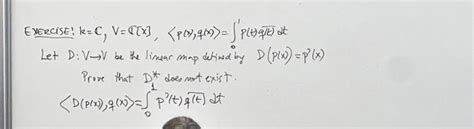 EXERCISE: k=ℂ, V=ℂ[x], ⟨p(x),q(x)⟩=∫₀¹ p(t)q̅(̅t̅)̅ dt
Let D:V→V be the linear map defined by D(p(x))=p'(x)
Prove that D* does not exist.
⟨D(p(x)),q(x)⟩=∫₀¹ p'(t)q̅(̅t̅)̅ dt